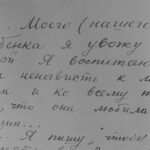 . Моего (нашего
бенка я увожу
ой. Я воспитаю
и ненависть к м
м и ко всему т
что она любила
зни...
.. Я пишу, чтобы